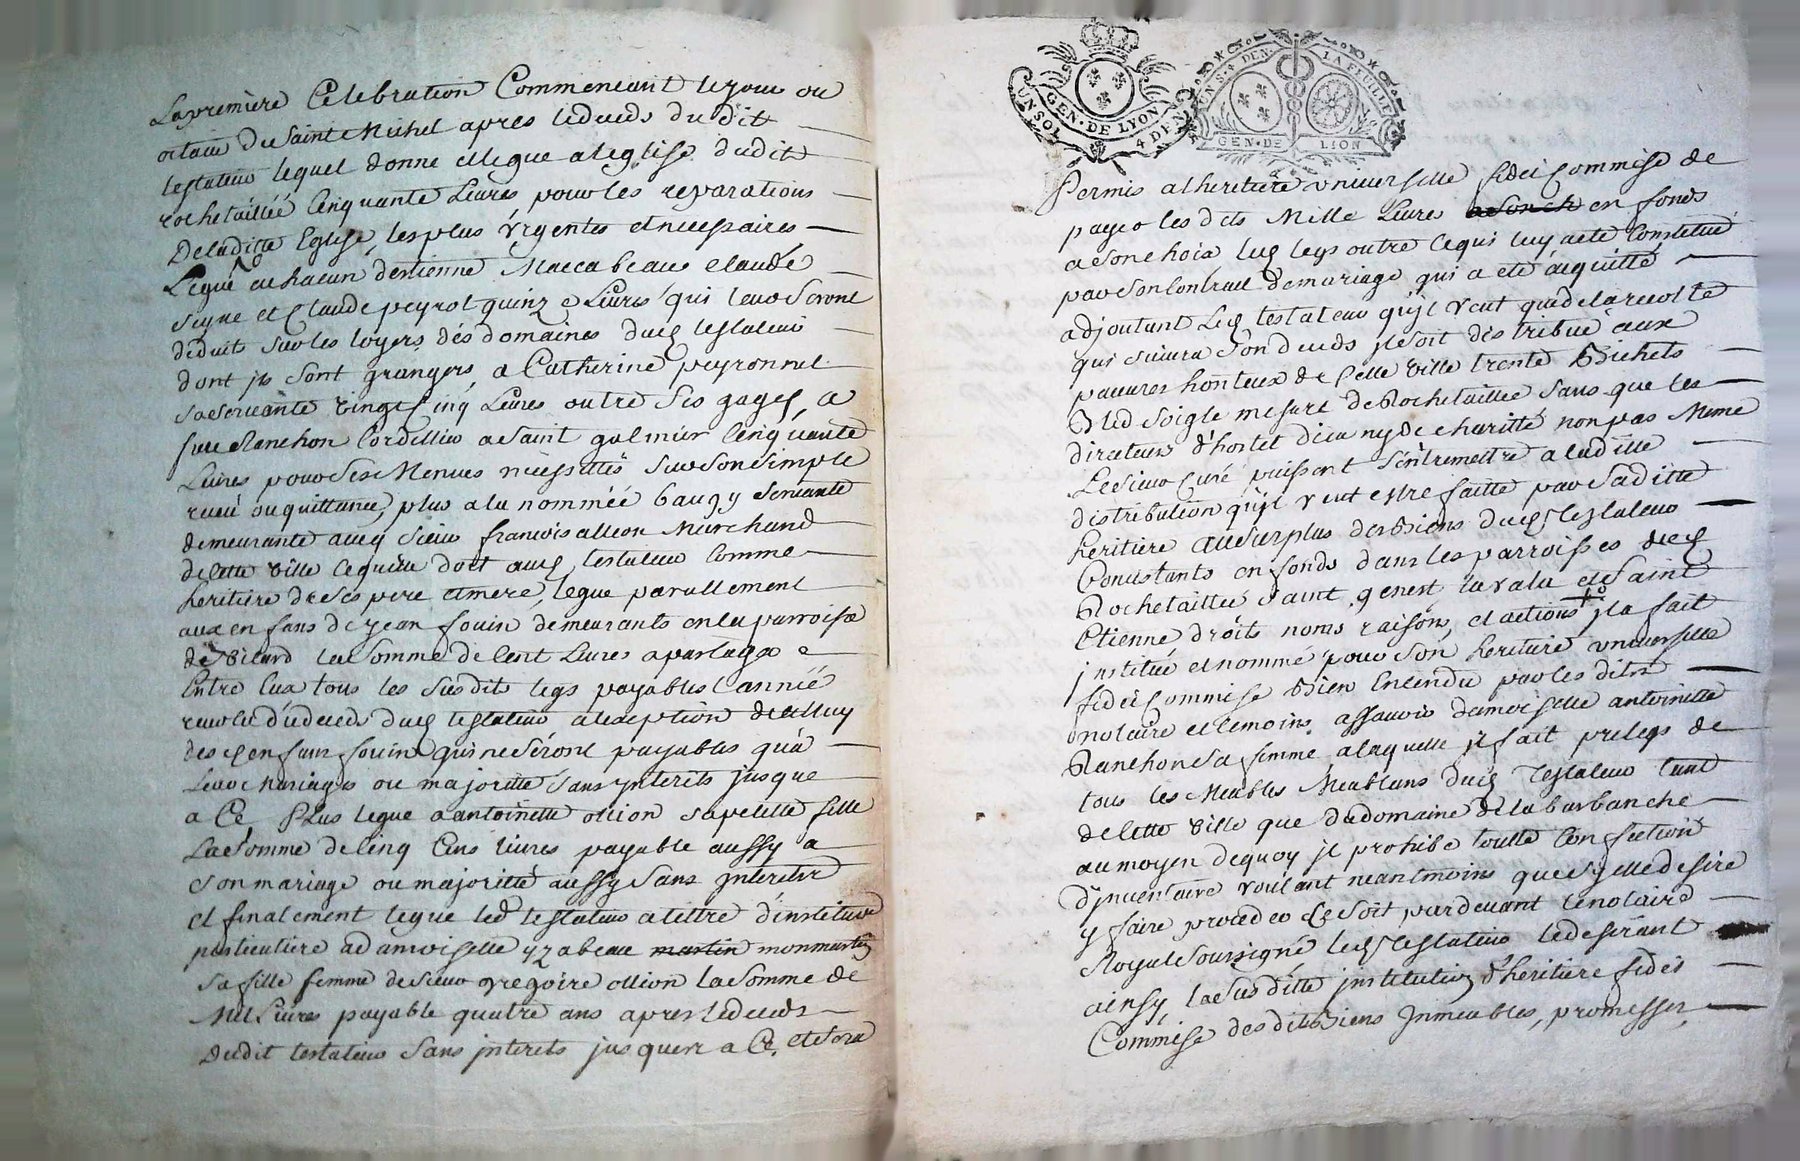 La premiere Celebration Commencant le jour ou
octave de Saint Michel apres le deceds du dit
testateur lequel donne et legue a leglise dudit
rochetaillée Cinquante Livres pour les reparations
De ladite Eglise, les plus Vrgentes et necessaires
Legue a chacun destienne Maccabeau Claude
seyne et Claude peyrot quinze Livres qui leur seront
deduits sur les loyers dés domaines dud testateur
dont jls sont grangers, a Catherine peyronnet
sa servante vingt cinq Livres outre ses gages, a
Ranchon Cordellier a Saint galmier Cinquante
Livres pour ses Menues necessittés sur son simple
receu ou quittance, plus a la nommée baugy servante
demeurante avec Sieur francois alleon Marchand
de cette ville Lequelle doit aud testateur Comme
heritiere de ses pere et mere, legue pareillement
aux enfans de jean fouin demeurants en la parroisse
de Vilard la somme de Cent Livres a partager
Entre Eux tous les susdits legs payables l'année
revolue du deceds dud testateur a lexeption de celluy
des d enfans fouin qui ne séront payables qu'a
Leur Mariage ou majoritté sans jnterets jusque
a Ce Plus legue a antoinette ollion sa petitte fille
La somme de Cinq Cens livres payable aussy a
son mariage ou majoritté aussy sans jnterets
et finalement legue led testateur a tiltre d'institution
particuliere a damoiselle yzabeau martin monmartin
sa fille femme de sieur gregoire ollion la somme de
Mil Livres payable quatre ans apres le deceds
Dudit testateur sans jnterets jusques a Ce, et sera
GEN. DE LYON
UN SOL
4 DEN
UN S. 4 DEN. LA FEUILLE
GEN. DE LION
Permis a lheritiere vniverselle fidei Commise de
payer les dits Mille Livres en fonds
a son choix lesd legs outre Ce qui luy a eté Constitué
par son Contract de mariage qui a eté acquitté
adjoutant Led testateur qu'jl veut que de la recolte
qui suivra son deceds jl soit distribué aux
pauvres honteux de cette ville trente Bichets
Bled seigle mesure de Rochetaillée sans que les
directeurs d'hostel dieu ny de charitté non pas Meme
Le sieur Curé puissent s'entremettre a laditte
distribution qu'jl veut estre faitte par saditte
heritiere au surplus des Biens dud testateur
Concistants en fonds dans les parroisses de
Rochetaillée saint genest la vala et Saint
Etienne droits noms raisons, et actions jl a fait
jnstitué et nommé pour son heritiere vniverselle
fidei Commise Bien Entendu par les dits
notaire et temoins assavoir damoiselle antoinette
Ranchon sa femme a laquelle jl fait prelegs de
tous les Meubles Meublans dud Testateur tant
de Cette ville que du domaine de la barbanche
au moyen dequoy jl prohibe toutte Confection
d'jnventaire voulant neantmoins que sy elle desire
y faire proceder Ce soit pardevant le notaire
Royal soussigné led testateur le desirant
ainsy, la sus ditte jnstitution d'heritiere fidei
Commise des dits Biens jnmeubles, promesses,